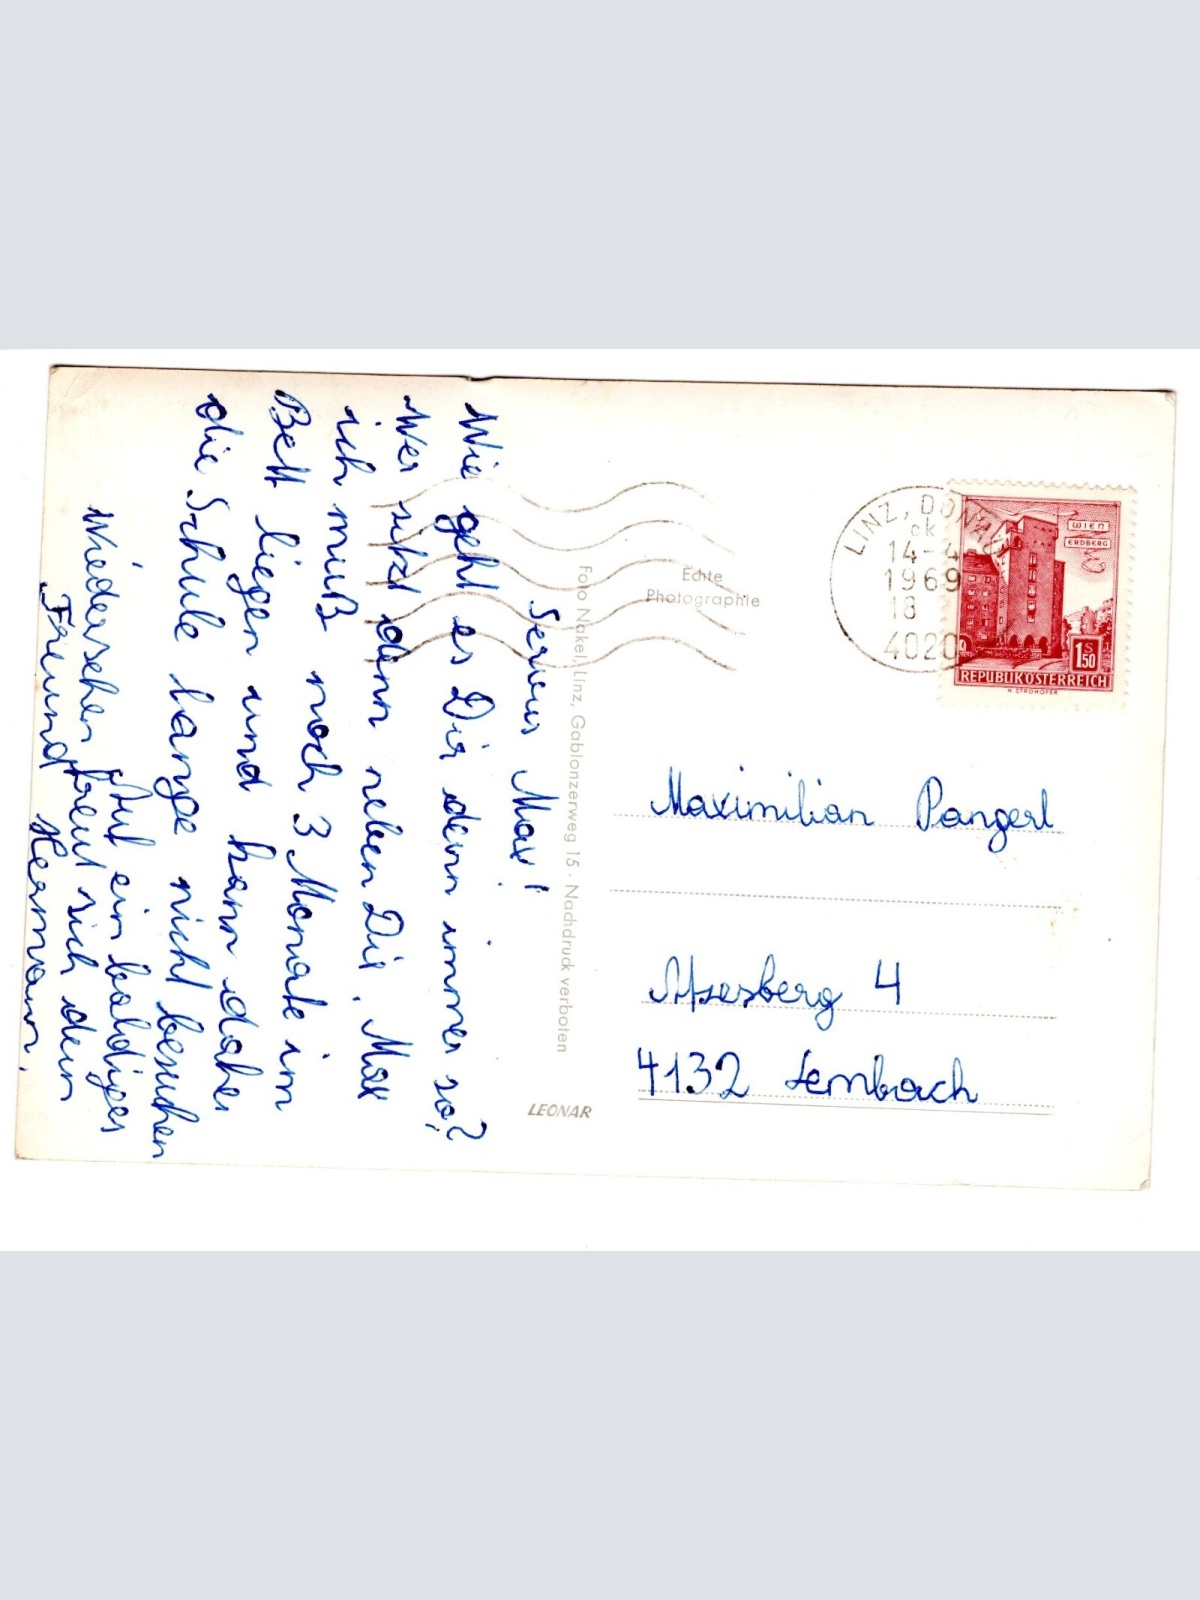 Servus Max!
Wie geht es Dir denn immer so?
Wer sitzt denn neben Dir, Max
ich muß noch 3 Monate im
Bett liegen und kann daher
die Schule lange nicht besuchen
Auf ein baldiges
Wiedersehen freut sich dein
Freund Hermann.
Foto Nakel, Linz, Gablonzerweg 15 · Nachdruck verboten
LEONAR
Echte
Photographie
LINZ, DONAU
ok
14-4
1969
18
4020
WIEN
ERDBERG
1S50
REPUBLIK ÖSTERREICH
H. STROHOFER
Maximilian Pangerl
Atzesberg 4
4132 Lembach